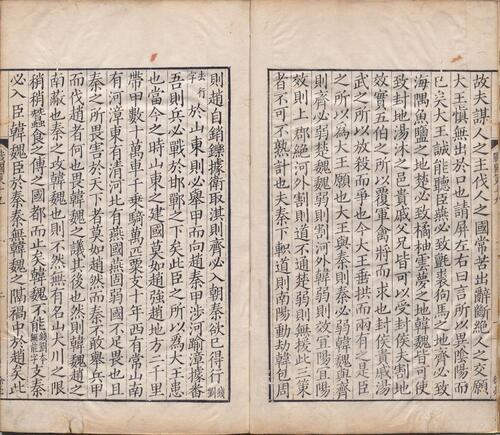 故夫謀人之主伐人之國常苦出辭斷絕人之交願
大王愼無出於口也請屏左右曰言所以異陰陽而
已矣大王誠能聽臣燕必致氊裘狗馬之地齊必致
海隅魚鹽之地楚必致橘柚雲夢之地韓魏皆可使
致封地湯沐之邑貴戚父兄皆可以受封侯夫割地
效實五伯之所以覆軍禽將而求也封侯貴戚湯
武之所以放殺而爭也今大王垂拱而兩有之是臣
之所以為大王願也大王與秦則秦必弱韓魏與齊
則齊必弱楚魏魏弱則割河外韓弱則效宜陽宜陽
效則上郡絶河外割則道不通楚弱則無援此三策
者不可不熟計也夫秦下軹道則南陽動劫韓包周
則趙自銷鑠據衛取淇則齊必入朝秦欲已得行
於山東則必舉甲而向趙秦甲涉河踰漳據番
吾則兵必戰於邯鄲之下矣此臣之所以為大王患
也當今之時山東之建國莫如趙強趙地方二千里
帶甲數十萬車千乗騎萬匹粟支十年西有常山南
有河漳東有清河北有燕國燕固弱國不足畏也且
秦之所畏害於天下者莫如趙然而秦不敢舉兵甲
而伐趙者何也畏韓魏之議其後也然則韓魏趙之
南蔽也秦之攻韓魏也則不然無有名山大川之限
稍稍蠶食之傅之國都而止矣韓魏不能支秦
必入臣韓魏臣於秦秦無韓魏之隔禍中於趙矣此